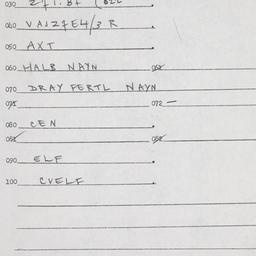 030 271.87 (822
040 VAJZFE4/3 R
050 AXT
060 HALB NAYN 062
070 DRAY FERTL NAYN
071 072 —
080 CEN
081 082
090 ELF
100 CVELF